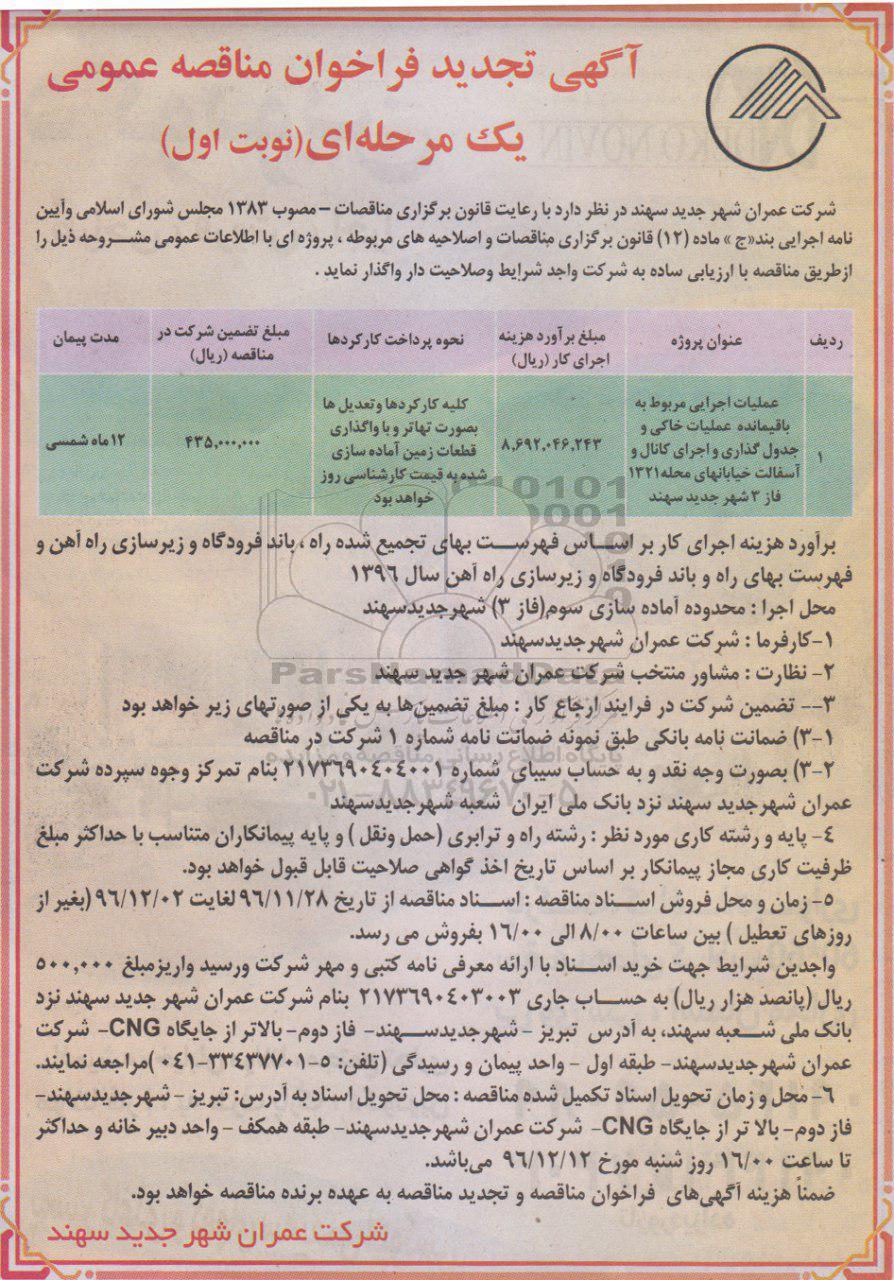 آگهی تجدید فراخوان مناقصه عمومی
یک مرحله‌ای(نوبت اول)
شرکت عمران شهر جدید سهند در نظر دارد با رعایت قانون برگزاری مناقصات – مصوب ۱۳۸۳ مجلس شورای اسلامی وآیین
نامه اجرایی بند«ج » ماده (۱۲) قانون برگزاری مناقصات و اصلاحیه های مربوطه ، پروژه ای با اطلاعات عمومی مشروحه ذیل را
ازطریق مناقصه با ارزیابی ساده به شرکت واجد شرایط وصلاحیت دار واگذار نماید .
ردیف
عنوان پروژه
مبلغ برآورد هزینه
اجرای کار (ریال)
نحوه پرداخت کارکردها
مبلغ تضمین شرکت در
مناقصه (ریال)
مدت پیمان
۱
عملیات اجرایی مربوط به
باقیمانده عملیات خاکی و
جدول گذاری و اجرای کانال و
آسفالت خیابانهای محله۱۳۲۱
فاز ۳ شهر جدید سهند
۸,۶۹۲,۰۴۶,۲۴۳
کلیه کارکردها وتعدیل ها
بصورت تهاتر و با واگذاری
قطعات زمین آماده سازی
شده به قیمت کارشناسی روز
خواهد بود
۴۳۵,۰۰۰,۰۰۰
۱۲ماه شمسی
برآورد هزینه اجرای کار بر اساس فهرست بهای تجمیع شده راه ، باند فرودگاه و زیرسازی راه آهن و
فهرست بهای راه و باند فرودگاه و زیرسازی راه آهن سال ۱۳۹۶
محل اجرا : محدوده آماده سازی سوم(فاز ۳) شهرجدیدسهند
۱-کارفرما : شرکت عمران شهرجدیدسهند
۲- نظارت : مشاور منتخب شرکت عمران شهر جدید سهند
۳-- تضمین شرکت در فرایند ارجاع کار : مبلغ تضمین‌ها به یکی از صورتهای زیر خواهد بود
۳-۱) ضمانت نامه بانکی طبق نمونه ضمانت نامه شماره ۱ شرکت در مناقصه
۳-۲) بصورت وجه نقد و به حساب سیبای شماره ۲۱۷۳۶۹۰۴۰۴۰۰۱ بنام تمرکز وجوه سپرده شرکت
عمران شهرجدید سهند نزد بانک ملی ایران شعبه شهرجدیدسهند
۴- پایه و رشته کاری مورد نظر : رشته راه و ترابری (حمل ونقل ) و پایه پیمانکاران متناسب با حداکثر مبلغ
ظرفیت کاری مجاز پیمانکار بر اساس تاریخ اخذ گواهی صلاحیت قابل قبول خواهد بود.
۵- زمان و محل فروش اسناد مناقصه : اسناد مناقصه از تاریخ ۹۶/۱۱/۲۸ لغایت ۹۶/۱۲/۰۲ (بغیر از
روزهای تعطیل ) بین ساعات ۸/۰۰ الی ۱۶/۰۰ بفروش می رسد.
واجدین شرایط جهت خرید اسناد با ارائه معرفی نامه کتبی و مهر شرکت ورسید واریزمبلغ ۵۰۰,۰۰۰
ریال (پانصد هزار ریال) به حساب جاری ۲۱۷۳۶۹۰۴۰۳۰۰۳ بنام شرکت عمران شهر جدید سهند نزد
بانک ملی شعبه سهند، به آدرس تبریز – شهرجدیدسهند- فاز دوم- بالاتر از جایگاه CNG- شرکت
عمران شهرجدیدسهند- طبقه اول – واحد پیمان و رسیدگی (تلفن: ۵-۳۳۴۳۷۷۰۱-۰۴۱ )مراجعه نمایند.
۶- محل و زمان تحویل اسناد تکمیل شده مناقصه : محل تحویل اسناد به آدرس: تبریز – شهرجدیدسهند-
فاز دوم- بالا تر از جایگاه CNG- شرکت عمران شهرجدیدسهند- طبقه همکف – واحد دبیر خانه و حداکثر
تا ساعت ۱۶/۰۰ روز شنبه مورخ ۹۶/۱۲/۱۲ می‌باشد.
ضمناً هزینه آگهی‌های فراخوان مناقصه و تجدید مناقصه به عهده برنده مناقصه خواهد بود.
شرکت عمران شهر جدید سهند
ParsNamadData
پایگاه اطلاع رسانی مناقصه و مزایده
۰۲۱-۸۸۳۴۹۶۷۰-۵